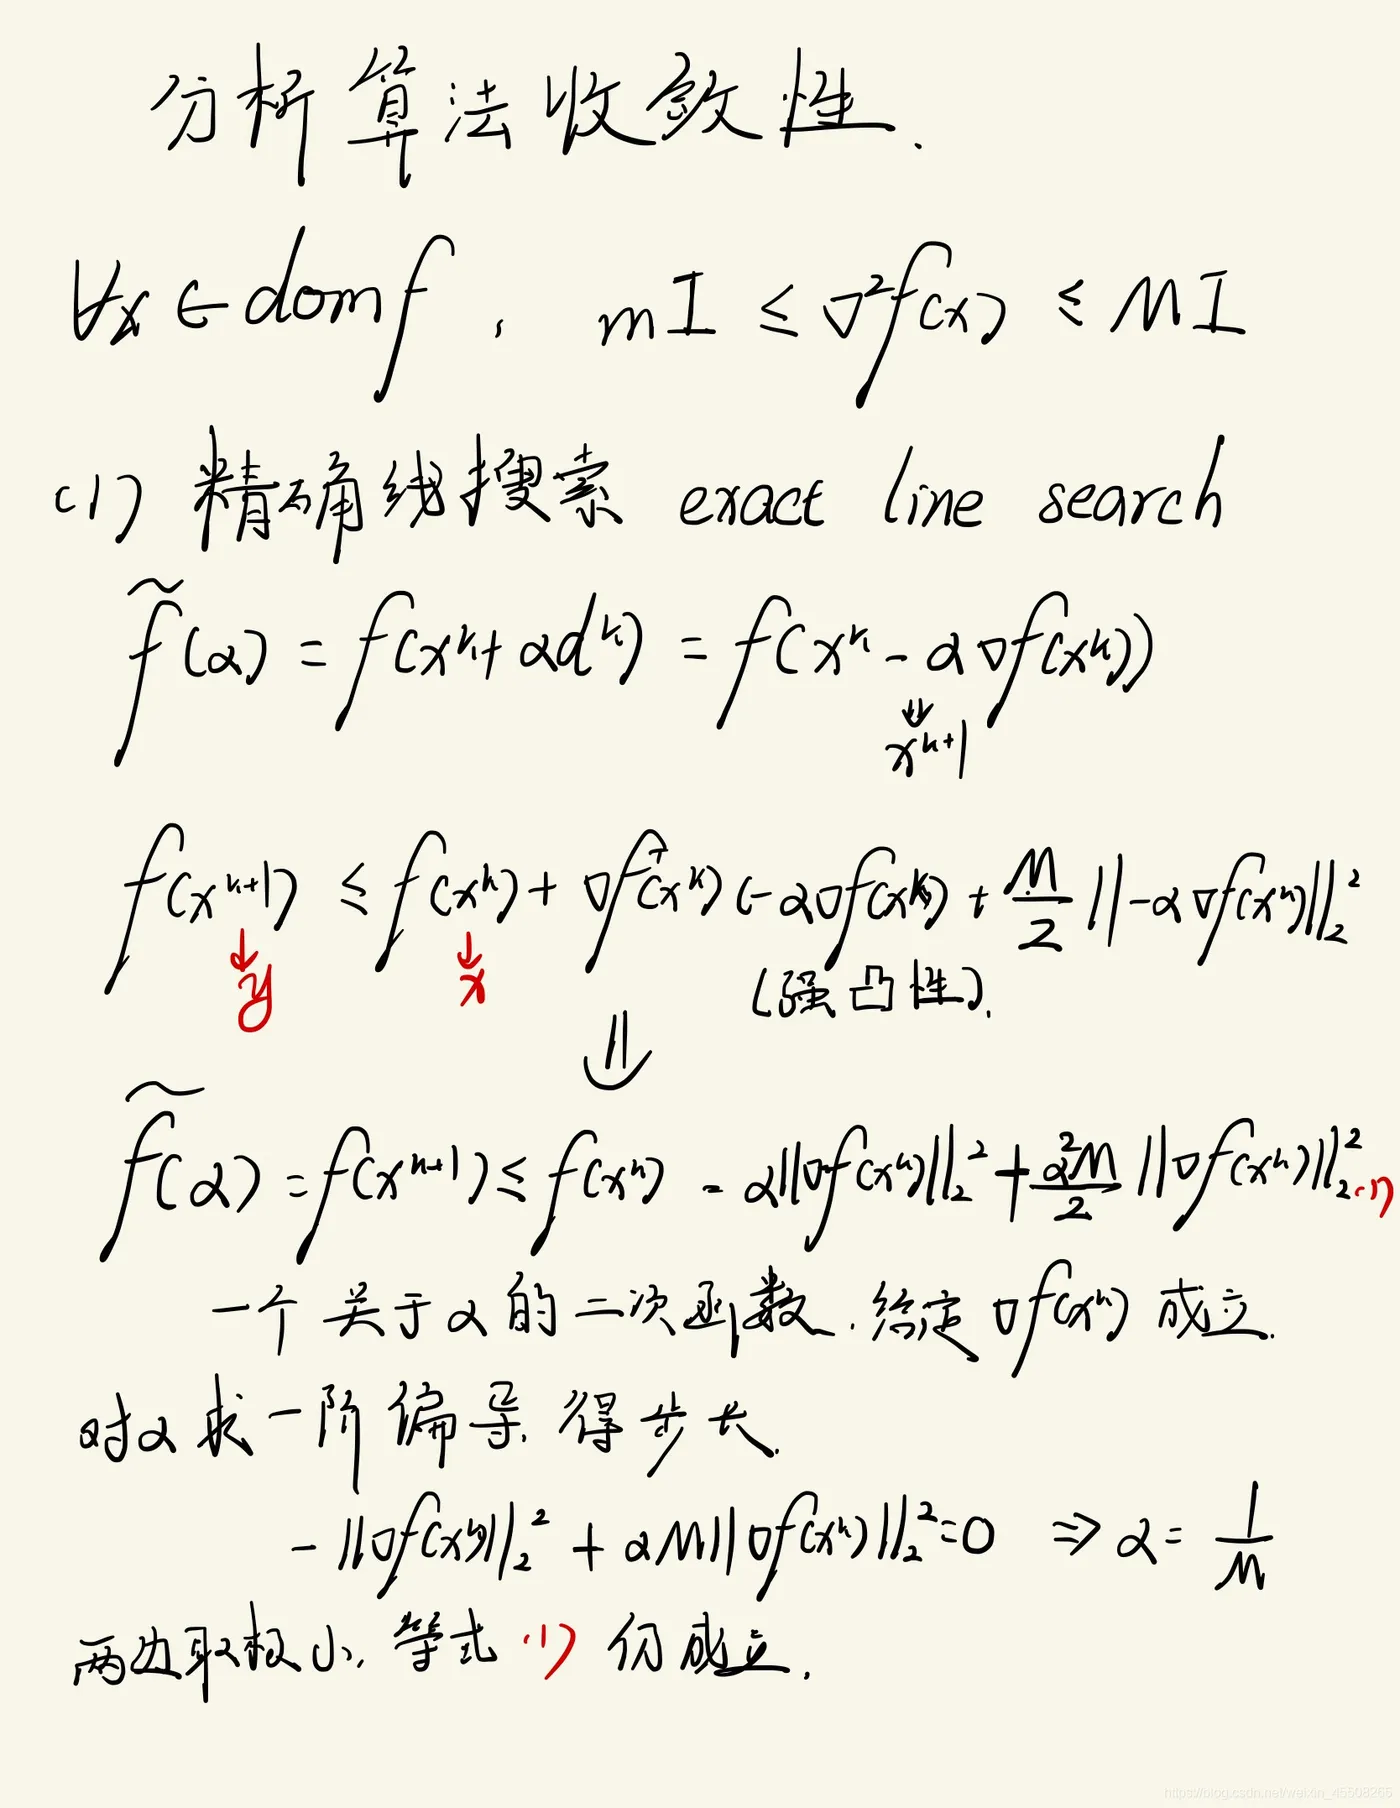 分析算法收敛性.
∀x ∈ dom f , mI ≤ ∇²f(x) ≤ MI
(1) 精确线搜索 exact line search
f̃(α) = f(xᵏ + αdᵏ) = f(xᵏ - α∇f(xᵏ))
⇓
xᵏ⁺¹
f(xᵏ⁺¹) ≤ f(xᵏ) + ∇fᵀ(xᵏ)(-α∇f(xᵏ)) + M/2 ||-α∇f(xᵏ)||₂²
↓ ↓
y x
(强凸性).
⇓
f̃(α) = f(xᵏ⁺¹) ≤ f(xᵏ) - α||∇f(xᵏ)||₂² + α²M/2 ||∇f(xᵏ)||₂² (1)
一个关于α的二次函数.给定∇f(xᵏ)成立.
对α求一阶偏导,得步长.
-||∇f(xᵏ)||₂² + αM||∇f(xᵏ)||₂² = 0 ⇒ α = 1/M
两边取极小,等式(1)仍成立.
https://blog.csdn.net/weixin_45508265